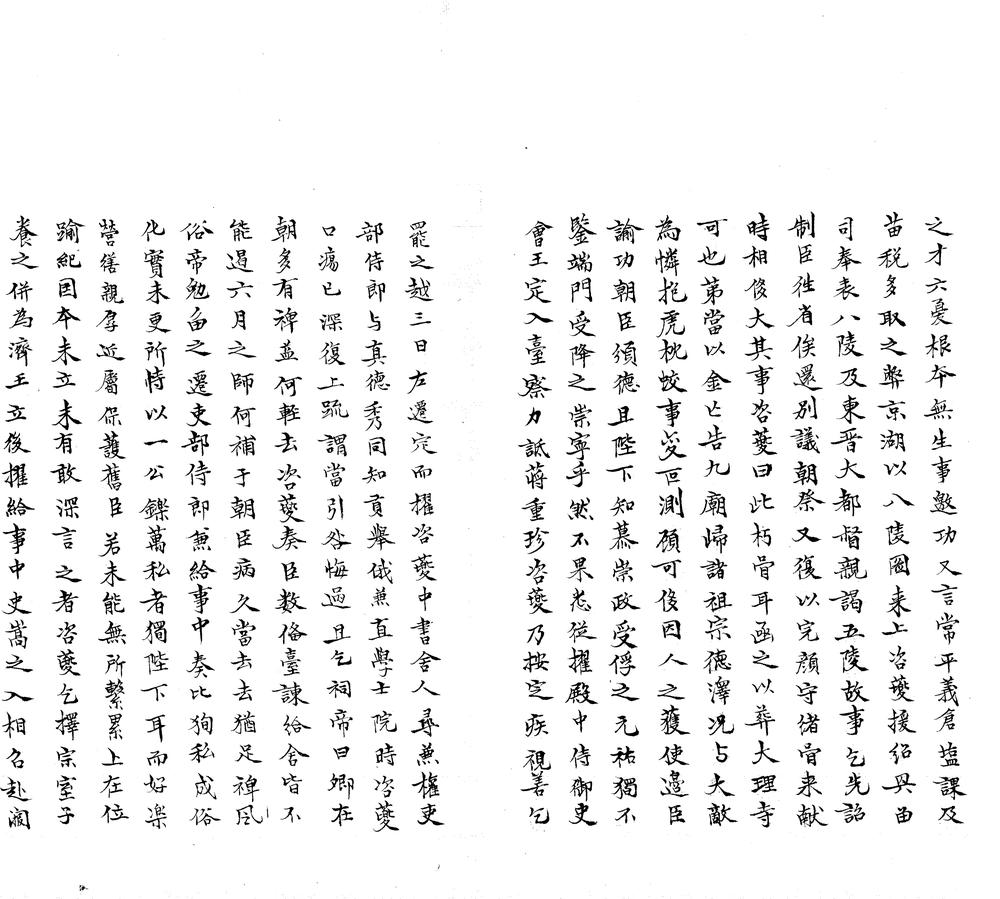 之才六憂根本無生事邀功又言常平義倉塩課及
苗税多取之弊京湖以八陵圖来上咨夔援紹興留
司奉表八陵及東晋大都督親謁五陵故事乞先詔
制臣徃省俟還别議朝祭又復以完顔守緒骨来献
時相侈大其事咨夔曰此朽骨耳函之以葬大理寺
可也第當以金亡告九廟歸諸祖宗德澤况与大敵
為憐抱虎枕蛟事变叵測顧可侈因人之獲使邉臣
諭功朝臣頌德且陛下知慕崇政受俘之元祐獨不
鑒端門受降之崇寧乎然不果悉從擢殿中侍御史
會王定入臺察力詆蒋重珍咨夔乃按定疾視善乞
罷之越三日左遷定而擢咨夔中書舍人尋兼權吏
部侍郎与真德秀同知貢舉俄兼直學士院時咨夔
口瘍已深復上疏謂當引咎悔過且乞祠帝曰卿在
朝多有裨益何軽去咨夔奏臣数偹臺諫給舍皆不
能遏六月之師何補于朝臣病久當去去猶足裨風
俗帝勉畱之遷吏部侍郎兼給事中奏比狥私成俗
化實未更所恃以一公鑠萬私者獨陛下耳而好楽
營缮親厚近屬保護舊臣若未能無所繫累上在位
踰紀囯本未立未有敢深言之者咨夔乞擇宗室子
養之併為濟王立後擢給事中史嵩之入相召赴闕